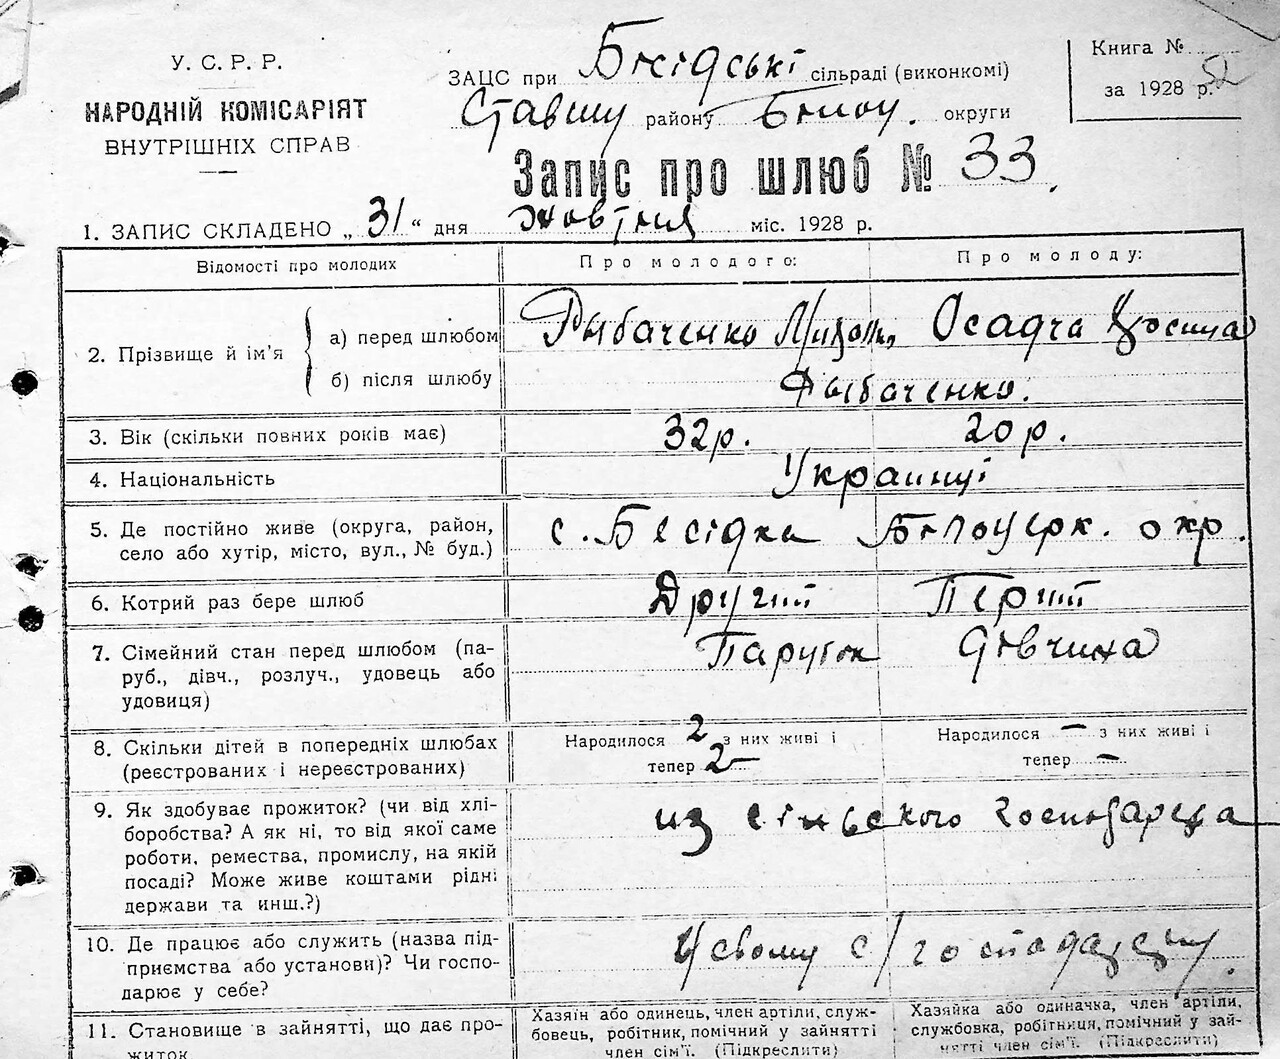 У. С. Р. Р.
НАРОДНІЙ КОМІСАРІЯТ
ВНУТРІШНІХ СПРАВ
ЗАЦС при Бесідські сільраді (виконкомі)
Ставищ. району Білоц. округи
Книга №
за 1928 р. 52
Запис про шлюб № 33.
1. ЗАПИС СКЛАДЕНО „ 31 “ дня жовтня міс. 1928 р.
Відомості про молодих
Про молодого:
Про молоду:
2. Прізвище й ім'я
а) перед шлюбом
Рыбаченко Осадча
б) після шлюбу
Рыбаченко.
3. Вік (скільки повних років має)
32р. 20р.
4. Національність
Украинці
5. Де постійно живе (округа, район,
село або хутір, місто, вул., № буд.)
с. Бесідка Білоцерк. окр.
6. Котрий раз бере шлюб
Другий Перший
7. Сімейний стан перед шлюбом (па-
руб., дівч., розлуч., удовець або
удовиця)
Парубок дівчина
8. Скільки дітей в попередніх шлюбах
(реєстрованих і нереєстрованих)
Народилося 2 з них живі і
тепер 2
Народилося — з них живі і
тепер —
9. Як здобуває прожиток? (чи від хлі-
боробства? А як ні, то від якої саме
роботи, ремества, промислу, на якій
посаді? Може живе коштами рідні
держави та инш.?)
из сільского господарсва
10. Де працює або служить (назва під-
приємства або установи)? Чи госпо-
дарює у себе?
У свому с/господарсву.
11. Становище в зайнятті, що дає про-
житок
Хазяїн або одинець, член артілі, служ-
бовець, робітник, помічний у зайнятті
член сім'ї. (Підкреслити)
Хазяйка або одиначка, член артіли,
службовка, робітниця, помічний у зай-
нятті член сім'ї. (Підкреслити)